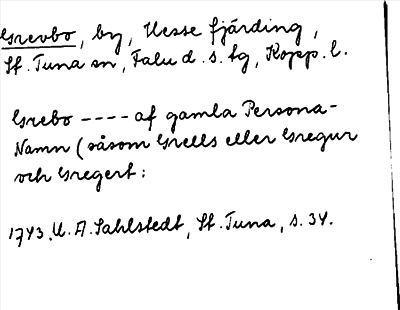 Grevbo, by, Hesse fjärding,
St. Tuna sn, Falu d. s. lg, Kopp. l.
Grebo ---- af gamla Persona-
Namn (såsom Grells eller Gregur
och Gregert:
1743. U. A. Sahlstedt, St. Tuna, s. 34.